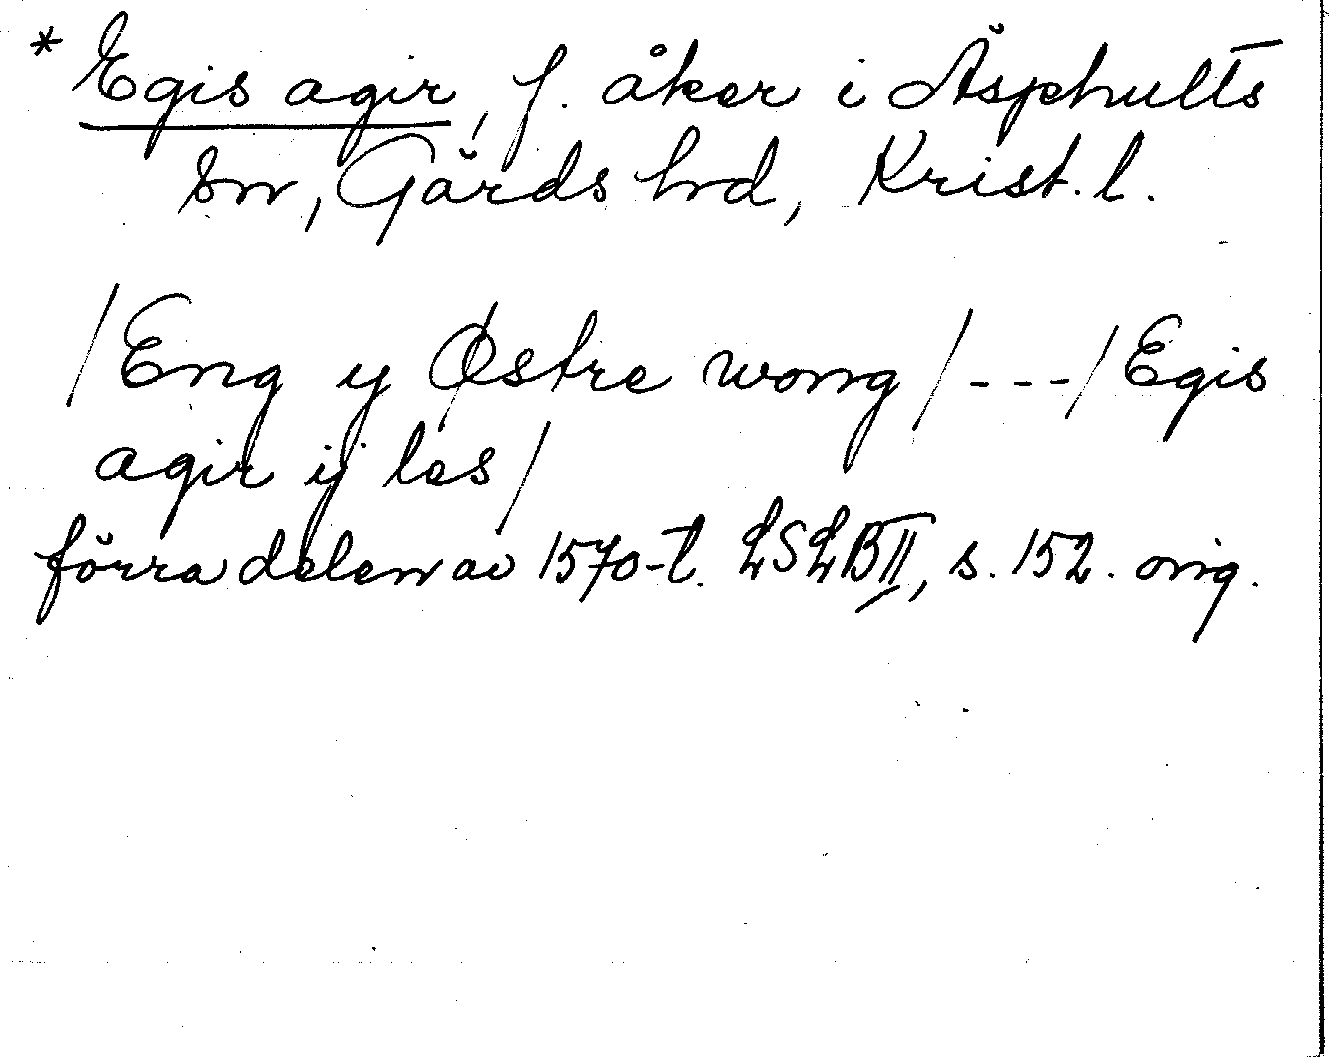 * Egis agir, f. åker i Äsphults
sn, Gärds hd, Krist. l.
/Eng y Østre wong/---/Egis
agir ij les/
förra delen av 1570-t. LSLBII, s. 152. orig.